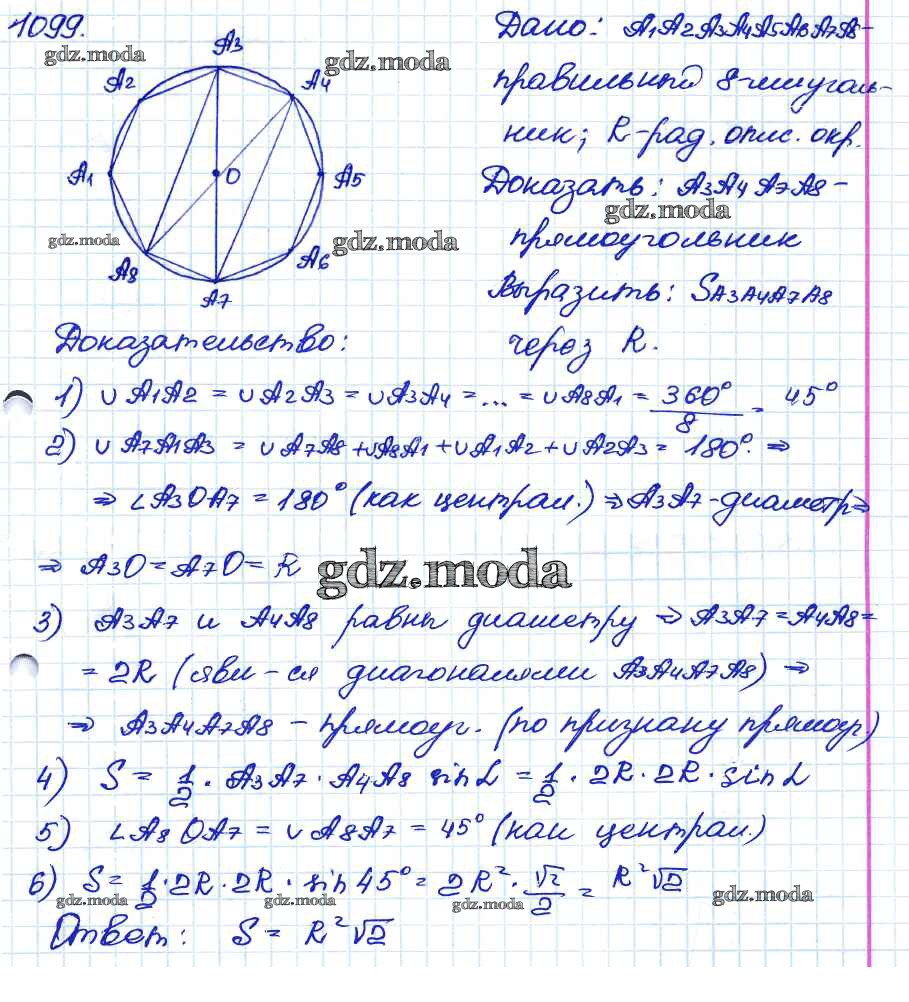 1099.
gdz.moda
A3
gdz.moda
A2
A4
A1
O
A5
gdz.moda
gdz.moda
A8
A6
A7
Дано: A1A2A3A4A5A6A7A8-
правильный 8-миуголь-
ник; R-рад. опис. окр.
Доказать: A3A4A7A8-
gdz.moda
прямоугольник
Выразить: SA3A4A7A8
через R.
Доказательство:
1) ∪A1A2 = ∪A2A3 = ∪A3A4 = ... = ∪A8A1 = 360°/8 = 45°
2) ∪A7A1A3 = ∪A7A8 + ∪A8A1 + ∪A1A2 + ∪A2A3 = 180°. ⇒
⇒ ∠A3OA7 = 180° (как централ.) ⇒ A3A7-диаметр ⇒
⇒ A3O = A7O = R
gdz.moda
3) A3A7 и A4A8 равны диаметру ⇒ A3A7 = A4A8 =
= 2R (явл-ся диагоналями A3A4A7A8) ⇒
⇒ A3A4A7A8 - прямоуг. (по признаку прямоуг.)
4) S = 1/2 · A3A7 · A4A8 sin L = 1/2 · 2R · 2R · sin L
5) ∠A8OA7 = ∪A8A7 = 45° (как централ.)
6) S = 1/2 · 2R · 2R · sin 45° = 2R² · √2/2 = R²√2
gdz.moda
gdz.moda
gdz.moda
gdz.moda
Ответ: S = R²√2